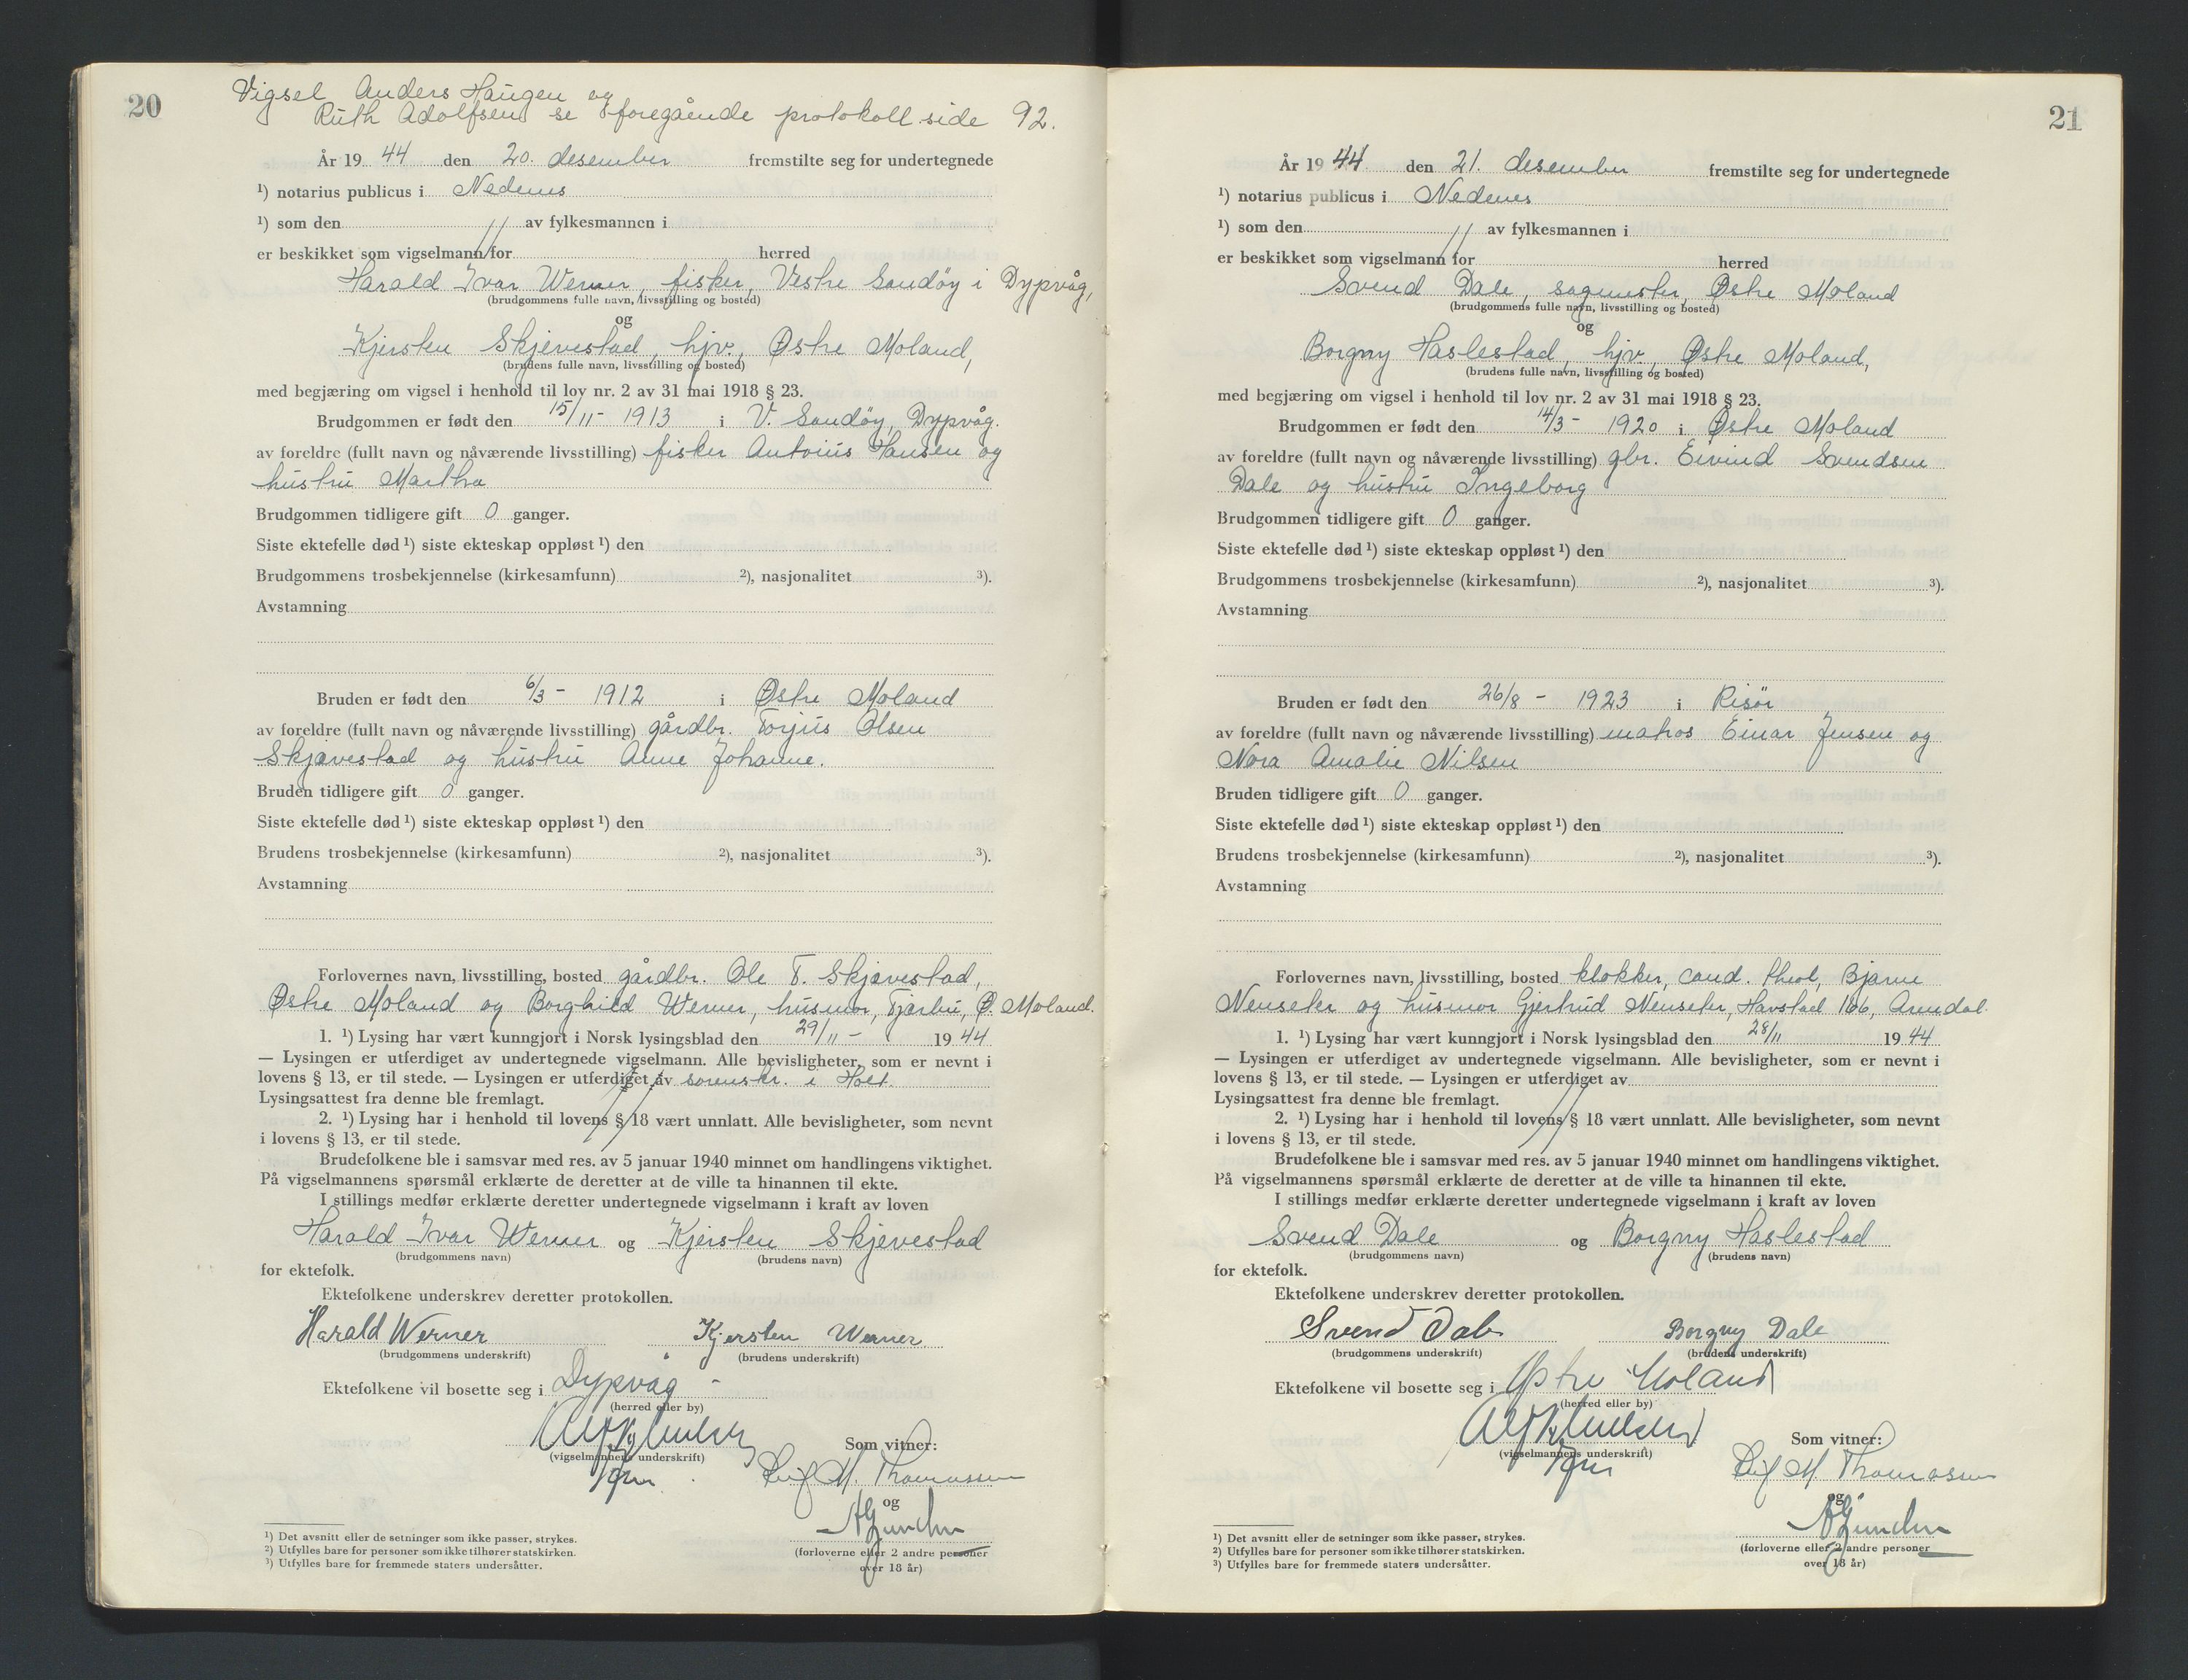 20
Vigsel Anders Haugen og
Ruth Adolfsen se foregående protokoll side 92.
År 19 44 den 20. desember fremstilte seg for undertegnede
¹) notarius publicus i Nedenes
¹) som den av fylkesmannen i
er beskikket som vigselmann for herred
Harald Ivar Werner, fisker, Vestre Sandöy i Dypvåg,
(brudgommens fulle navn, livsstilling og bosted)
og
Kjersten Skjevestad, hjv., Østre Moland,
(brudens fulle navn, livsstilling og bosted)
med begjæring om vigsel i henhold til lov nr. 2 av 31 mai 1918 § 23.
Brudgommen er født den 15/11 - 1913 i V. Sandöy, Dypvåg.
av foreldre (fullt navn og nåværende livsstilling) fisker Antonius Hansen og
hustru Martha
Brudgommen tidligere gift 0 ganger.
Siste ektefelle død ¹) siste ekteskap oppløst ¹) den
Brudgommens trosbekjennelse (kirkesamfunn) ²), nasjonalitet ³).
Avstamning
Bruden er født den 6/3 - 1912 i Østre Moland
av foreldre (fullt navn og nåværende livsstilling) gårdbr. Torjus Olsen
Skjævestad og hustru Anne Johanne.
Bruden tidligere gift 0 ganger.
Siste ektefelle død ¹) siste ekteskap oppløst ¹) den
Brudens trosbekjennelse (kirkesamfunn) ²), nasjonalitet ³).
Avstamning
Forlovernes navn, livsstilling, bosted gårdbr. Ole T. Skjævestad,
Østre Moland og Borghild Werner, husmor, Tjærbu, Ø. Moland.
1. ¹) Lysing har vært kunngjort i Norsk lysingsblad den 29/11 - 19 44
— Lysingen er utferdiget av undertegnede vigselmann. Alle bevisligheter, som er nevnt i
lovens § 13, er til stede. — Lysingen er utferdiget av sorenskr. i Holt.
Lysingsattest fra denne ble fremlagt.
2. ¹) Lysing har i henhold til lovens § 18 vært unnlatt. Alle bevisligheter, som nevnt
i lovens § 13, er til stede.
Brudefolkene ble i samsvar med res. av 5 januar 1940 minnet om handlingens viktighet.
På vigselmannens spørsmål erklærte de deretter at de ville ta hinannen til ekte.
I stillings medfør erklærte deretter undertegnede vigselmann i kraft av loven
Harald Ivar Werner og Kjersten Skjevestad
(brudgommens navn) (brudens navn)
for ektefolk.
Ektefolkene underskrev deretter protokollen.
Harald Werner Kjersten Werner
(brudgommens underskrift) (brudens underskrift)
Ektefolkene vil bosette seg i Dypvåg
(herred eller by)
Som vitner:
(vigselmannens underskrift)
Leif M. Thomassen
og
(forloverne eller 2 andre personer
over 18 år)
¹) Det avsnitt eller de setninger som ikke passer, strykes.
²) Utfylles bare for personer som ikke tilhører statskirken.
³) Utfylles bare for fremmede staters undersåtter.
21
År 19 44 den 21. desember fremstilte seg for undertegnede
¹) notarius publicus i Nedenes
¹) som den av fylkesmannen i
er beskikket som vigselmann for herred
Svend Dale, sagmester, Østre Moland
(brudgommens fulle navn, livsstilling og bosted)
og
Borgny Haslestad, hjv., Østre Moland,
(brudens fulle navn, livsstilling og bosted)
med begjæring om vigsel i henhold til lov nr. 2 av 31 mai 1918 § 23.
Brudgommen er født den 14/3 - 1920 i Østre Moland
av foreldre (fullt navn og nåværende livsstilling) gbr. Eivind Svendsen
Dale og hustru Ingeborg
Brudgommen tidligere gift 0 ganger.
Siste ektefelle død ¹) siste ekteskap oppløst ¹) den
Brudgommens trosbekjennelse (kirkesamfunn) ²), nasjonalitet ³).
Avstamning
Bruden er født den 26/8 - 1923 i Risör
av foreldre (fullt navn og nåværende livsstilling) matros Einar Jensen og
Nora Amalie Nilsen
Bruden tidligere gift 0 ganger.
Siste ektefelle død ¹) siste ekteskap oppløst ¹) den
Brudens trosbekjennelse (kirkesamfunn) ²), nasjonalitet ³).
Avstamning
Forlovernes navn, livsstilling, bosted klokker, cand. theol, Bjarne
Nenseter og husmor Gjertrud Nenseter, Havstad 166, Arendal.
1. ¹) Lysing har vært kunngjort i Norsk lysingsblad den 28/11 19 44
— Lysingen er utferdiget av undertegnede vigselmann. Alle bevisligheter, som er nevnt i
lovens § 13, er til stede. — Lysingen er utferdiget av
Lysingsattest fra denne ble fremlagt.
2. ¹) Lysing har i henhold til lovens § 18 vært unnlatt. Alle bevisligheter, som nevnt
i lovens § 13, er til stede.
Brudefolkene ble i samsvar med res. av 5 januar 1940 minnet om handlingens viktighet.
På vigselmannens spørsmål erklærte de deretter at de ville ta hinannen til ekte.
I stillings medfør erklærte deretter undertegnede vigselmann i kraft av loven
Svend Dale og Borgny Haslestad
(brudgommens navn) (brudens navn)
for ektefolk.
Ektefolkene underskrev deretter protokollen.
Svend Dale Borgny Dale
(brudgommens underskrift) (brudens underskrift)
Ektefolkene vil bosette seg i Østre Moland
(herred eller by)
Som vitner:
(vigselmannens underskrift)
Leif M. Thomassen
og
(forloverne eller 2 andre personer
over 18 år)
¹) Det avsnitt eller de setninger som ikke passer, strykes.
²) Utfylles bare for personer som ikke tilhører statskirken.
³) Utfylles bare for fremmede staters undersåtter.